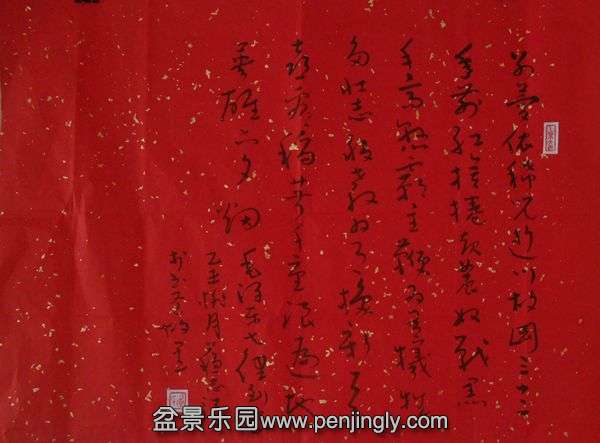 别梦依稀咒逝川故园三十二
年前红旗卷起农奴戟黑
手高悬霸主鞭为有牺牲
多壮志敢教日月换新天
喜看稻菽千重浪遍地
英雄下夕烟 毛泽东七律
月
盆景乐园www.penjingly.com